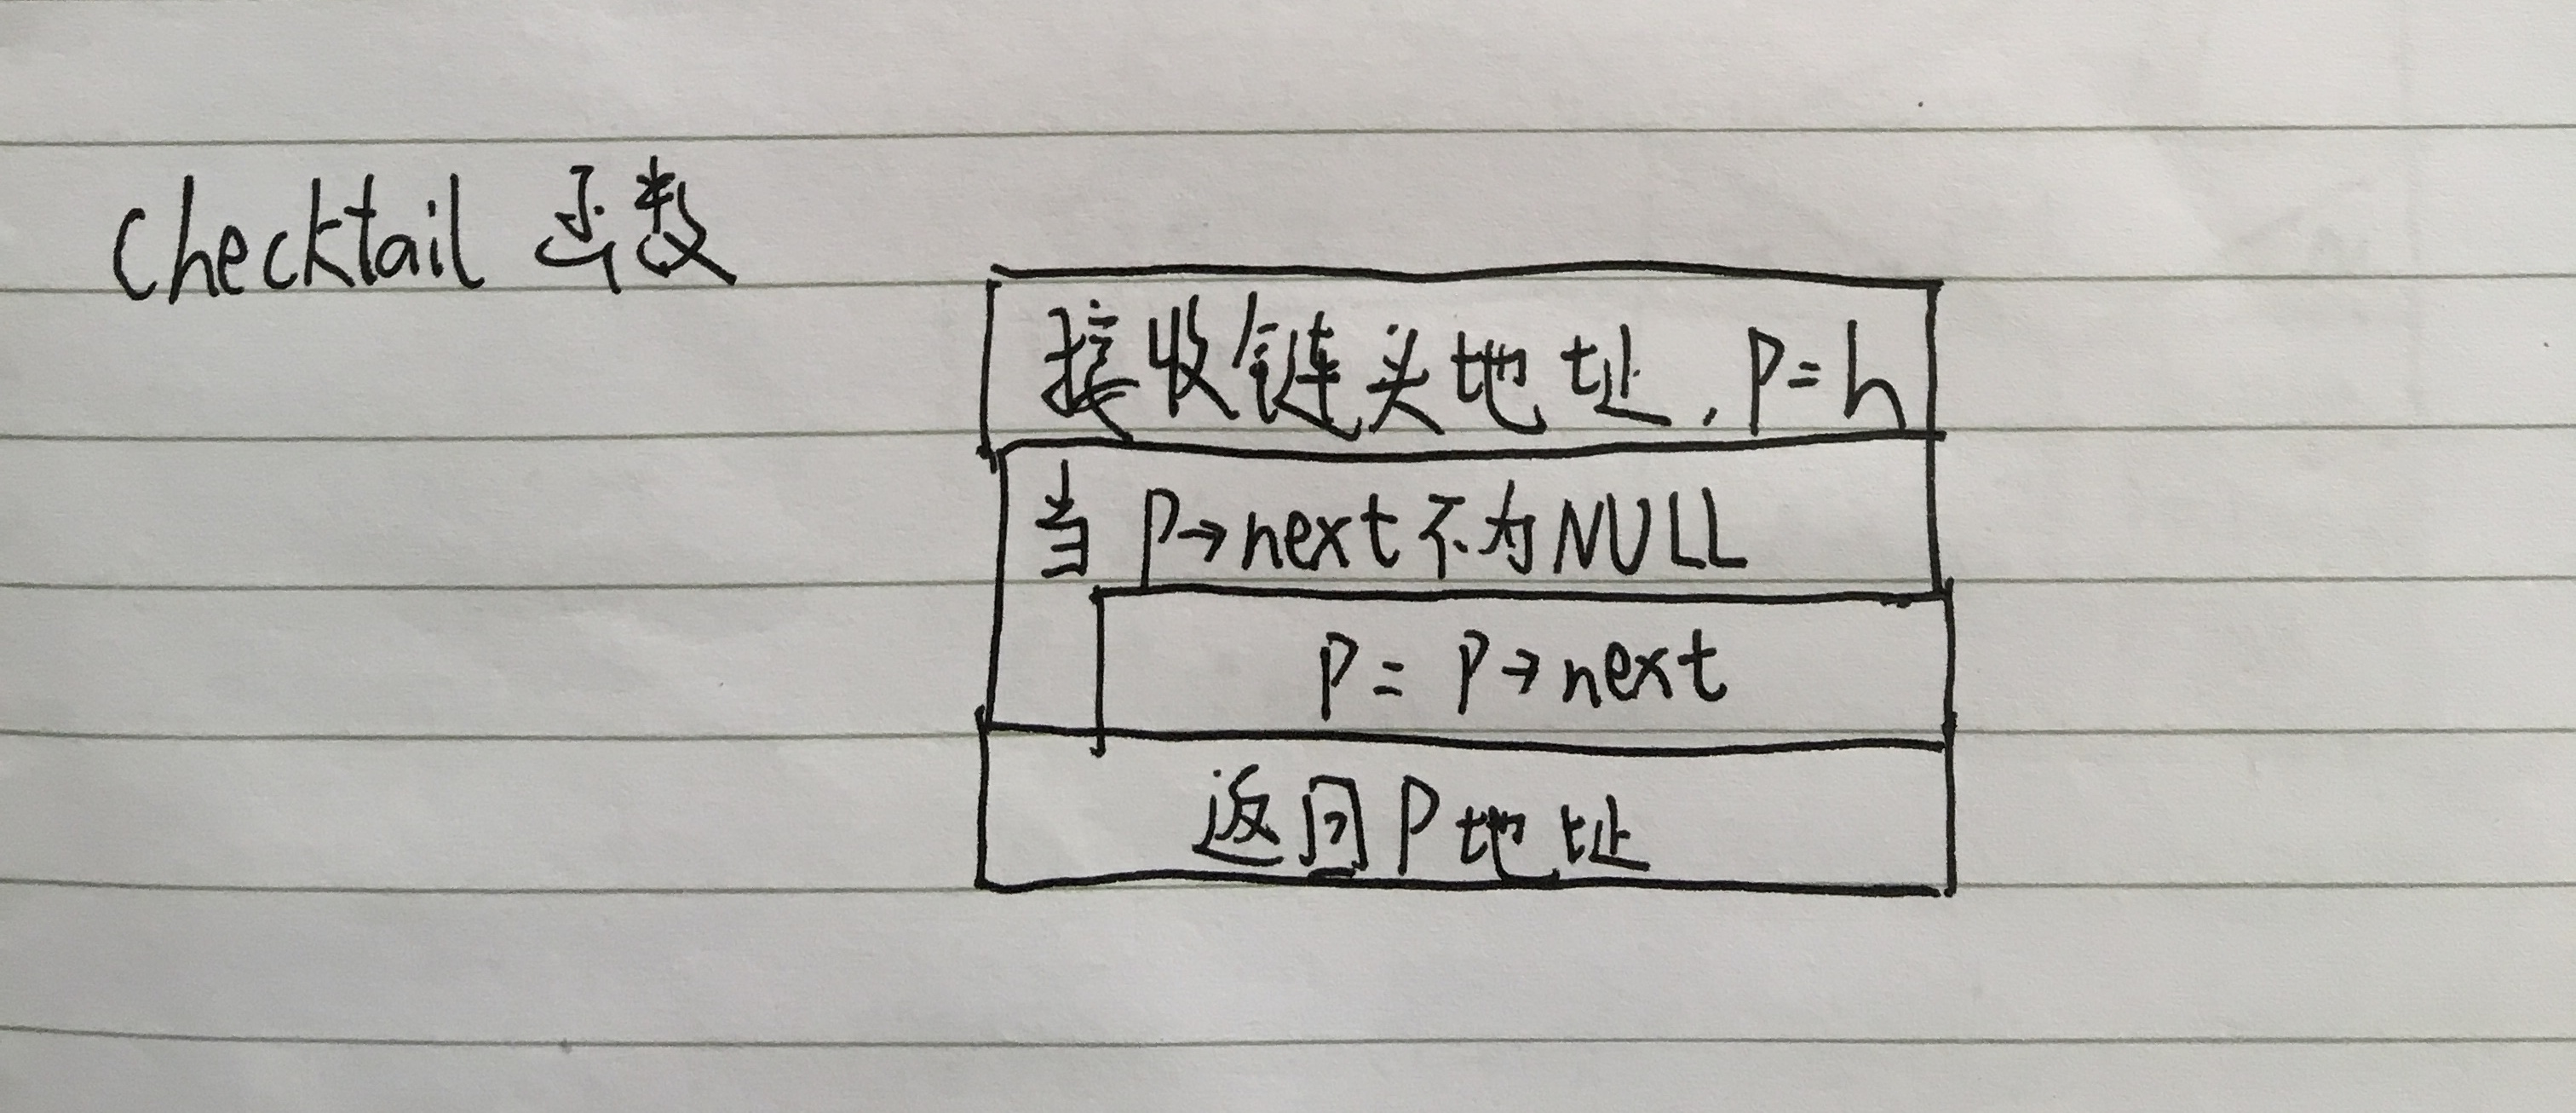 checktail 函数
接收链头地址，P=h
当 P→next不为NULL
P= P→next
返回P地址